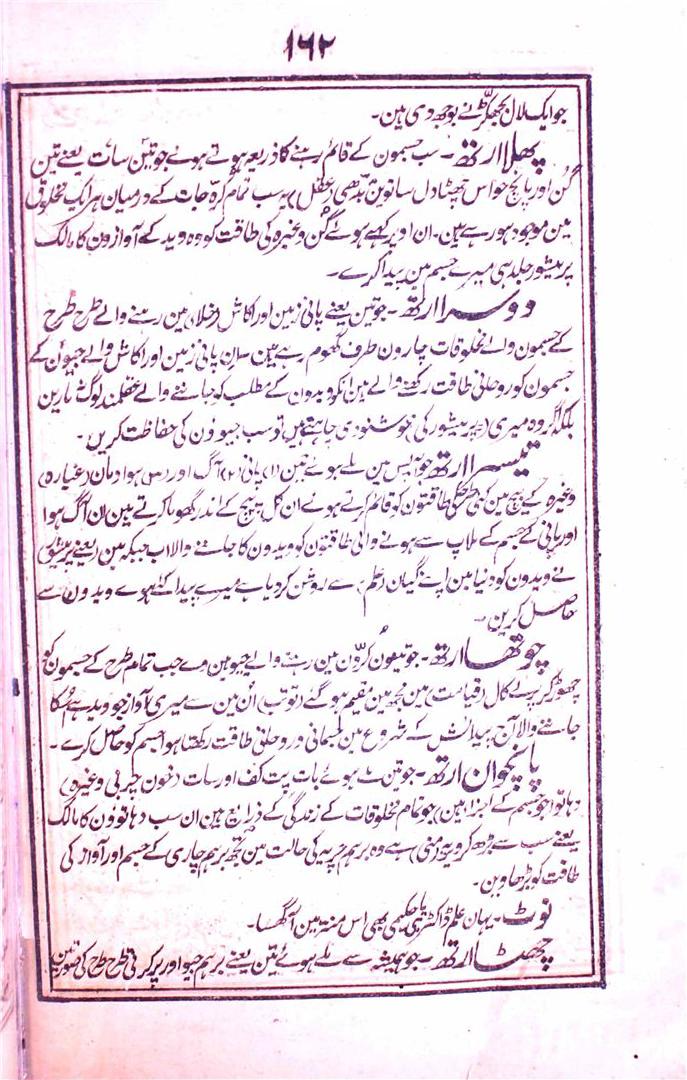 ۱۶۲
جو ایک لال بجھکڑ نے بوجھ دی ہین۔
پہلا ارتھ۔ سب جسمون کے قائم رہنے کا ذریعہ ہوتے ہوئے جو تین سات یعنے تین
گُن اور پانچ حواس چھٹا دل ساتوین بدھی (عقل) یہ سب تمام کرہ جات کے درمیان ہر ایک مخلوق
مین موجود ہو رہے ہین۔ ان اوپر کہے ہوئے گُن وغیرہ کی طاقت کو وہ وید کے آوازون کا مالک
پرمیشور جلد ہی میرے جسم مین پیدا کرے۔
دوسرا ارتھ۔ جو تین یعنے پانی زمین اور اکاش (خلا) مین رہنے والے طرح طرح
کے جسمون والے مخلوقات چارون طرف گھوم رہے ہین ان پانی زمین اور اکاش والے جیون کے
جسمون کو روحانی طاقت رکھنے والے ہین انکو ویدون کے مطلب کو جاننے والے عقلمند لوگ نہ مارین
بلکہ اگر وہ میری (پرمیشور کی) خوشنودی چاہتے ہین تو سب جیوون کی حفاظت کرین۔
تیسرا ارتھ جو آپس مین ملے ہوئے تین (۱) پانی (۲) آگ اور (۳) ہوا دمان (غبارہ)
وغیرہ کے بیچ مین کئی طرح کی طاقتون کو قائم کرتے ہوئے ان کل پیچ کے اندر گھوما کرتے ہین ان آگ ہوا
اور پانی کے جسم کے ملاپ سے ہونے والی طاقتون کو ویدون کا جاننے والا اب جبکہ مین (یعنے پرمیشور)
نے ویدون کو دنیا مین اپنے گیان (علم) سے روشن کر دیا ہے میرے پیدا کئے ہوے ویدون سے
حاصل کرین۔
چوتھا ارتھ۔ جو تینون کرّون مین رہنے والے جیو ہین وے جب تمام طرح کے جسمون کو
چھوڑ کر پرلے کال (قیامت) مین مجھ مین مقیم ہو گئے (تو تب) اُن مین سے میری آواز جو وید ہے اُسکا
جاننے والا آج پیدائش کے شروع مین جسمانی و روحانی طاقت رکھتا ہوا جسم کو حاصل کرے۔
پانچوان ارتھ۔ جو تین ملے ہوئے بات پت کف اور سات (خون چربی وغیرہ)
دہاتو (جو جسم کے اجزا ہین) جو تمام مخلوقات کے زندگی کے ذرائع ہین ان سب دہاتوؤن کا مالک
یعنے سب سے بڑھ کر ویرج (منی) ہے وہ برہم چریہ کی حالت مین مجھ برہم چاری کے جسم اور آواز کی
طاقت کو بڑھاوین۔
نوٹ۔ یہان علم ڈاکٹری یا حکیمی بھی اس منتر مین آگھسا۔
چھٹا ارتھ۔ جو ہمیشہ سے ملے ہوئے تین یعنے برہم جیو اور پرکرتی طرح طرح کی صورتین